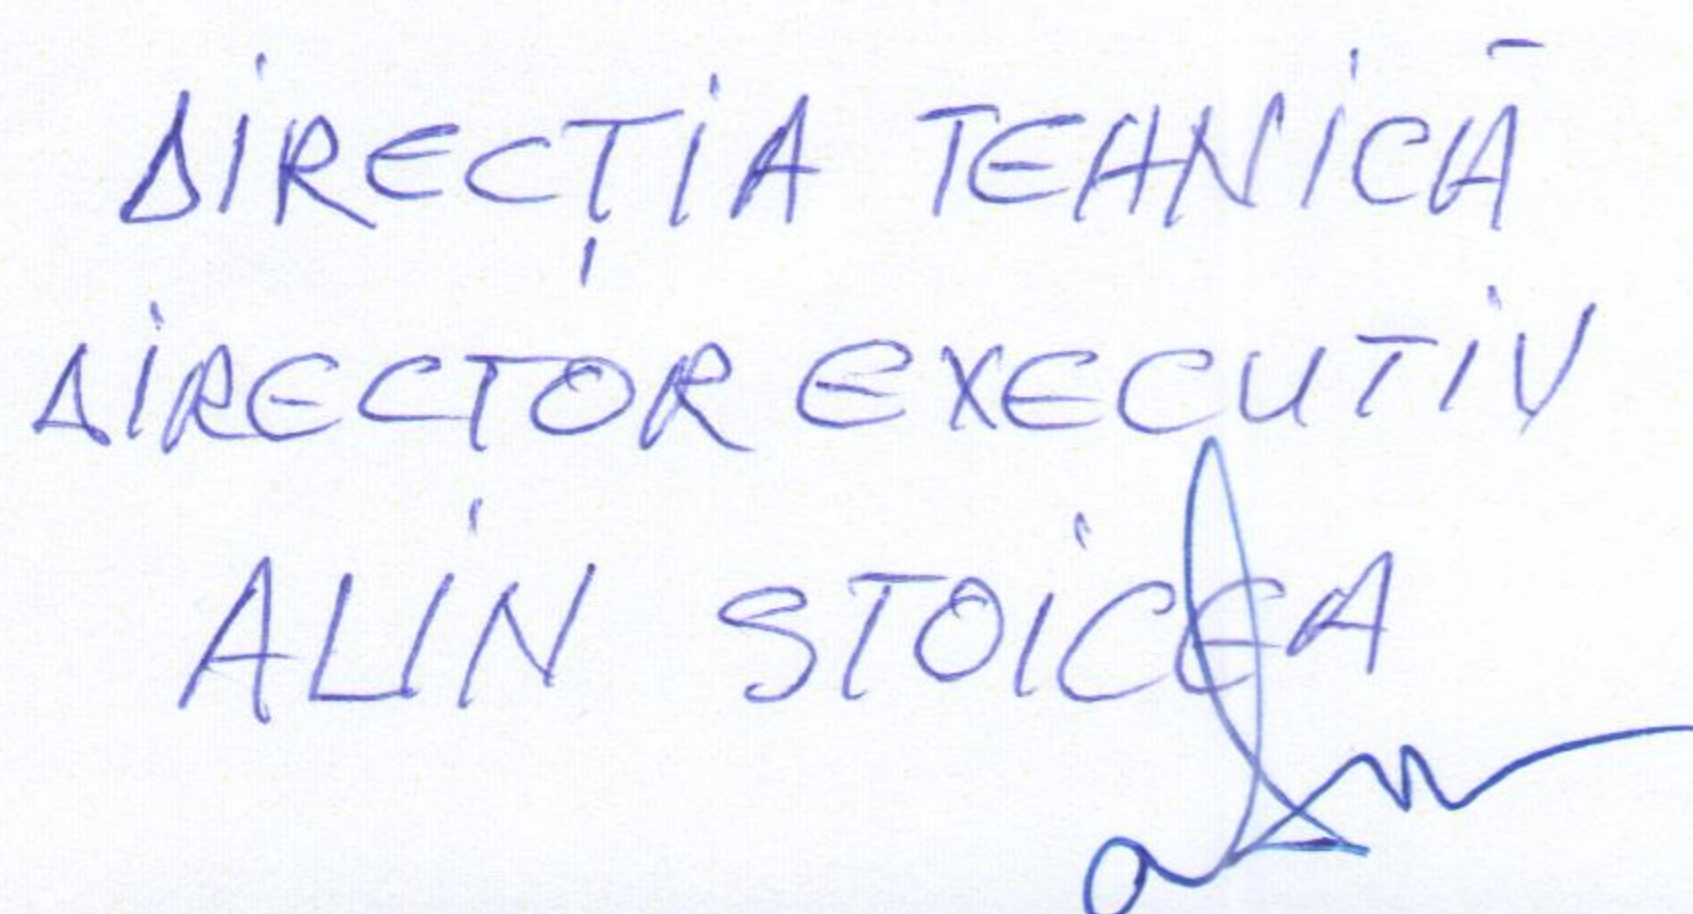 DIRECȚIA TEHNICĂ
DIRECTOR EXECUTIV
ALIN STOICEA